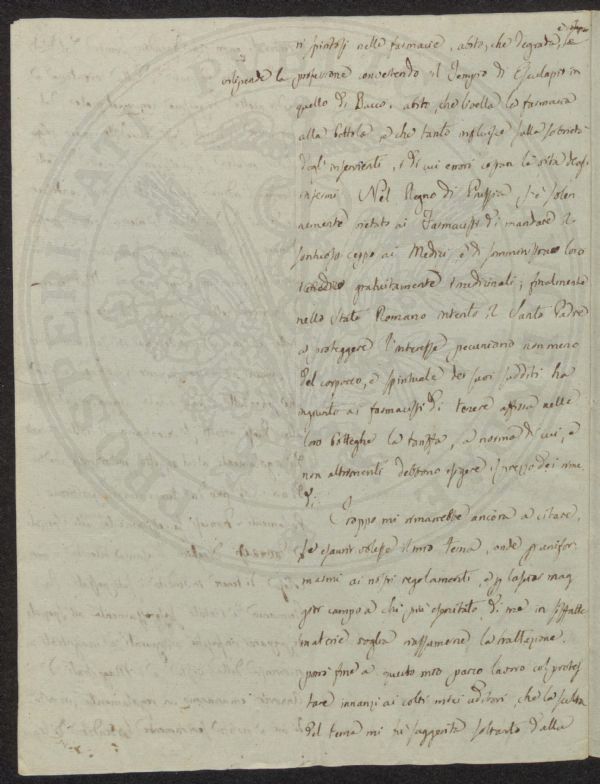 ri spiritosi nelle farmacie, abito, che degrada, e
vilipende la professione convertendo il Tempio di Esculapio in
quello di Bacco. abito, che livella la farmacia
alla bottola, e che tanto influisce sulla sobrietà
degl'inservienti, i di cui errori la vita degl'
infermi. Nel Regno di Prussia si è solen
nemente vietato ai Farmacisti di mandare il
sontuoso ceppo ai Medici, e di somministrare loro
gratuitamente i medicinali; finalmente
nello Stato Romano intento il Santo Padre
a proteggere l'interesse pecuniario non meno
del corporeo, e spirituale dei suoi sudditi ha
ingiunto ai farmacisti di tenere affissa nelle
loro botteghe la tariffa, a norma di cui, e
non altrimenti debbono esigere il prezzo dei rime
di.
Troppo mi rimarrebbe ancora a citare,
se esaurir volessi il mio tema, onde p unifor
marmi ai nostri regolamenti, e p lasciar mag
gior campo a chi più esperitato di me in siffatte
materie voglia riassumerne la trattazione,
porrò fine a questo mio parco lavoro col protes
tare innanzi ai colti miei uditori, che la scelta
del tema mi fu suggerita soltanto dalla